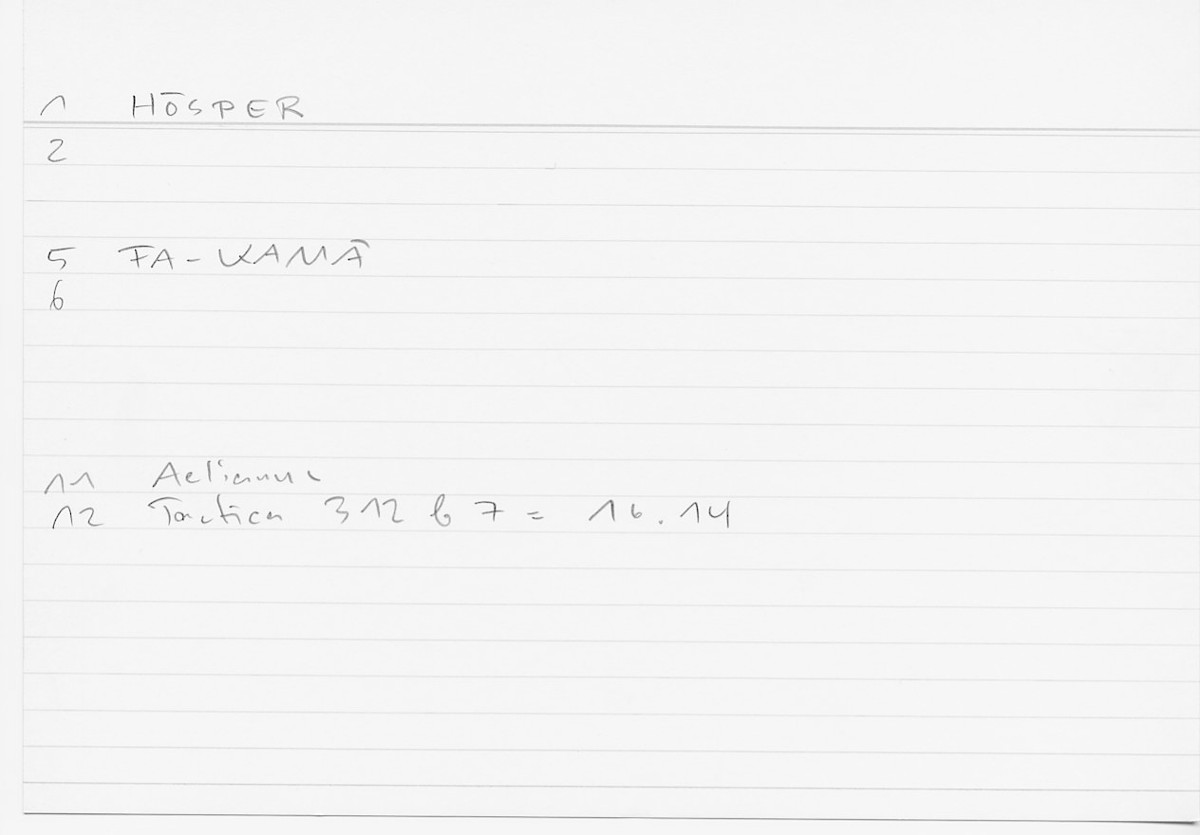 1 HŌSPER
2
5 FA-KAMĀ
6
11 Aelianus
12 Tactica 312 b 7 = 16.14